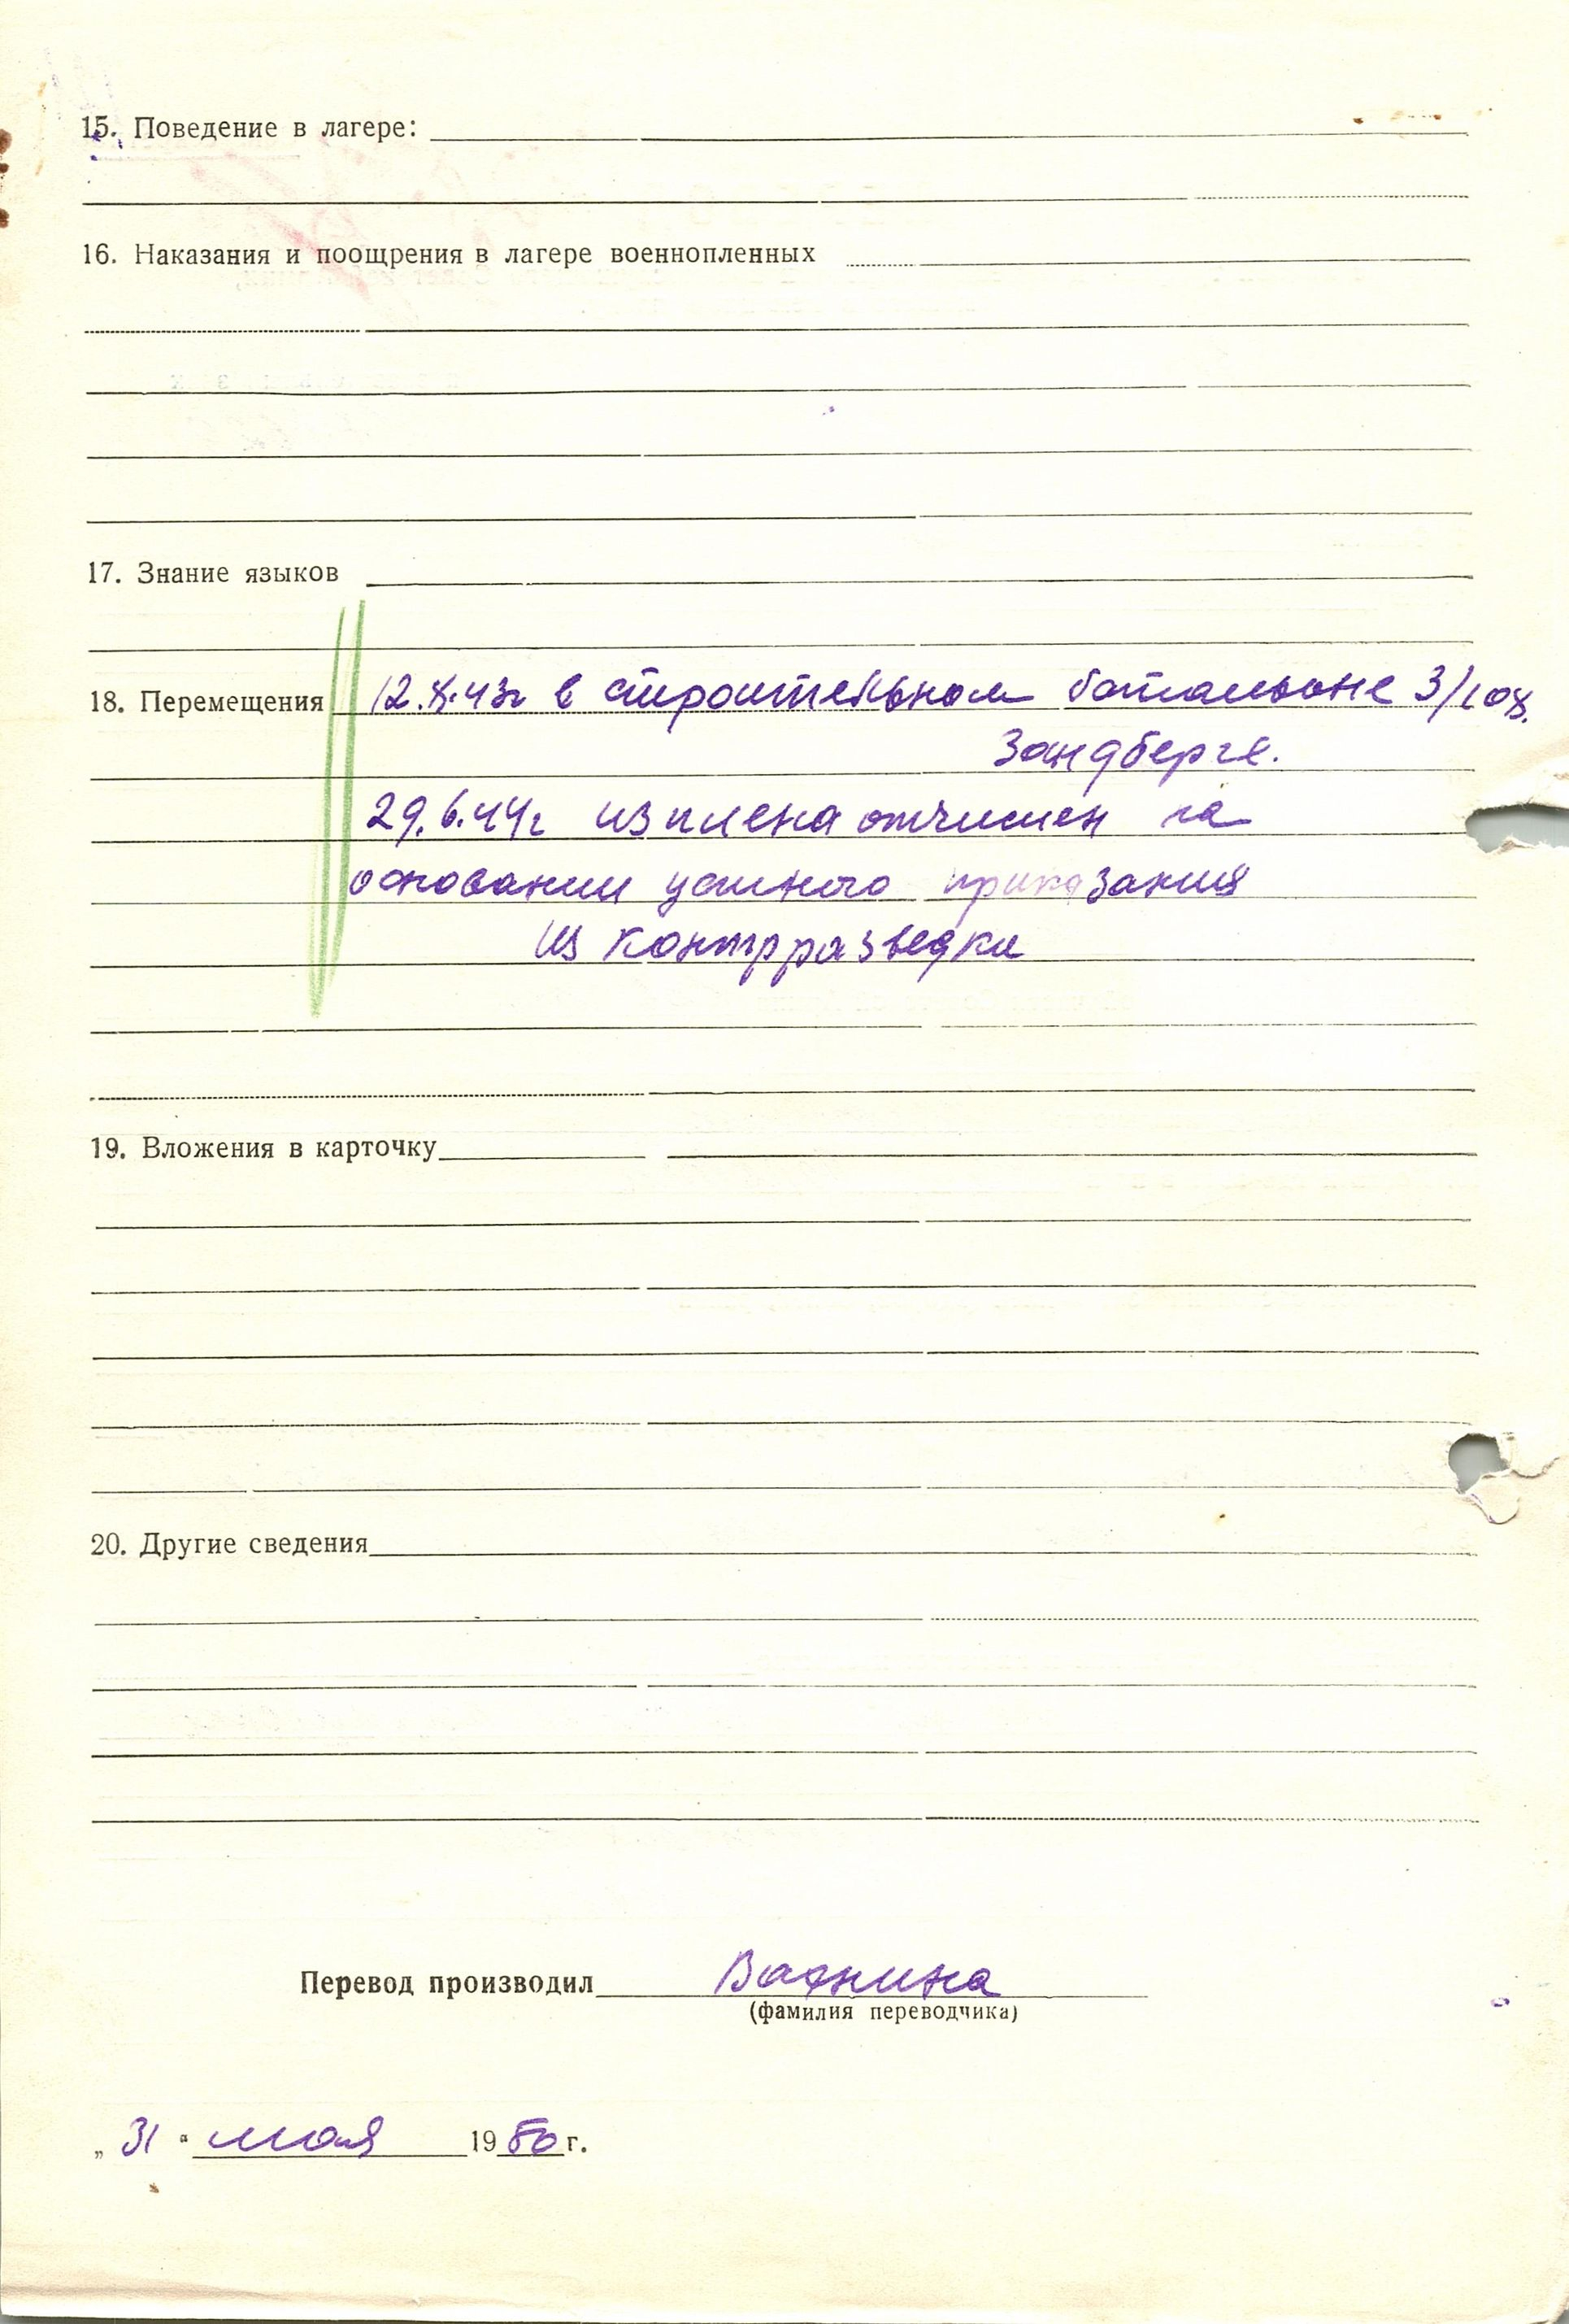 15. Поведение в лагере:
16. Наказания и поощрения в лагере военнопленных
17. Знание языков
18. Перемещения 12.X.43г в строительном батальоне 3/
Зандберге.
29.6.44г из плена отчислен на
основании устного приказания
из контрразведки
19. Вложения в карточку
20. Другие сведения
Перевод производил
(фамилия переводчика)
„ 31 “ мая 1950 г.